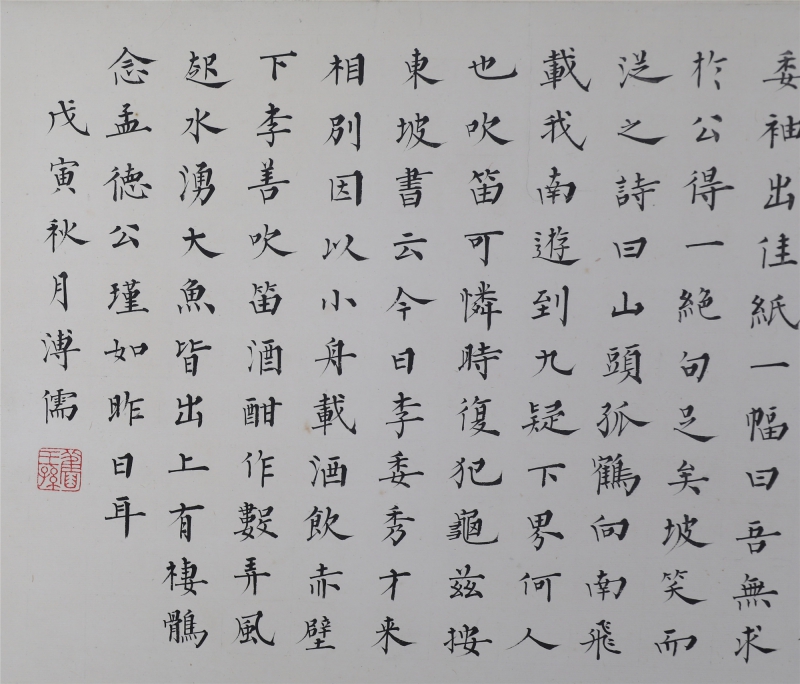 委袖出佳紙一幅曰吾無求
於公得一絕句足矣坡笑而
従之詩曰山頭孤鶴向南飛
載我南遊到九疑下界何人
也吹笛可憐時復犯龜茲按
東坡書云今日李委秀才来
相別因以小舟載酒飲赤壁
下李善吹笛酒酣作數弄風
起水湧大魚皆出上有棲鶻
念孟德公瑾如昨日耳
戊寅秋月溥儒
舊王孫